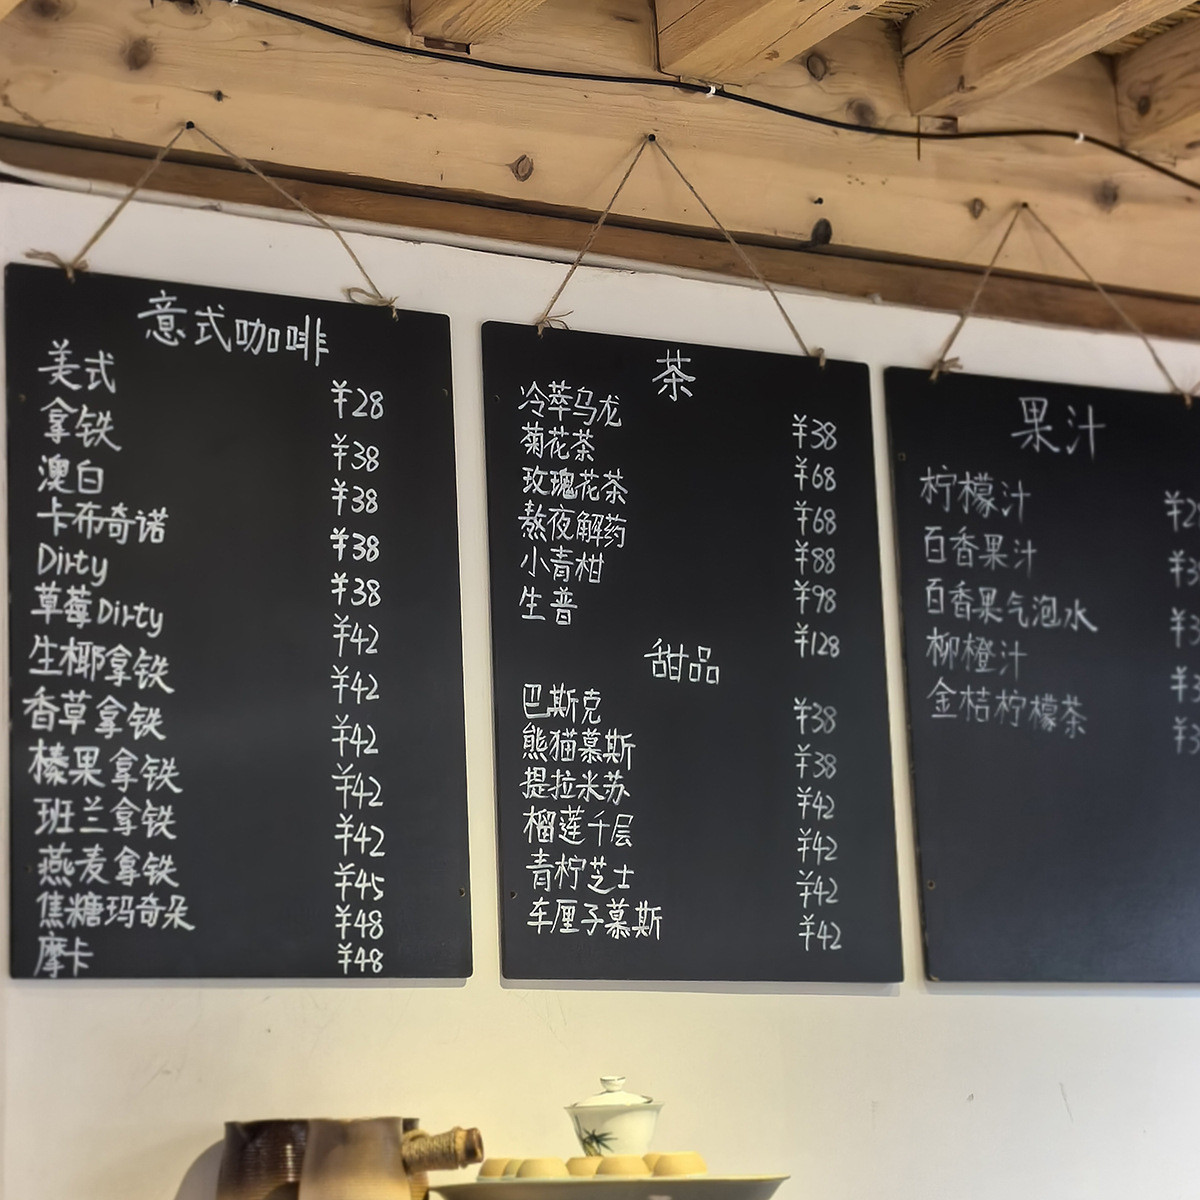 意式咖啡
美式 ¥28
拿铁 ¥38
澳白 ¥38
卡布奇诺 ¥38
Dirty ¥38
草莓Dirty ¥42
生椰拿铁 ¥42
香草拿铁 ¥42
榛果拿铁 ¥42
班兰拿铁 ¥42
燕麦拿铁 ¥45
焦糖玛奇朵 ¥48
摩卡 ¥48
茶
冷萃乌龙 ¥38
菊花茶 ¥68
玫瑰花茶 ¥68
熬夜解药 ¥88
小青柑 ¥98
生普 ¥128
甜品
巴斯克 ¥38
熊猫慕斯 ¥38
提拉米苏 ¥42
榴莲千层 ¥42
青柠芝士 ¥42
车厘子慕斯 ¥42
果汁
柠檬汁
百香果汁
百香果气泡水
柳橙汁
金桔柠檬茶